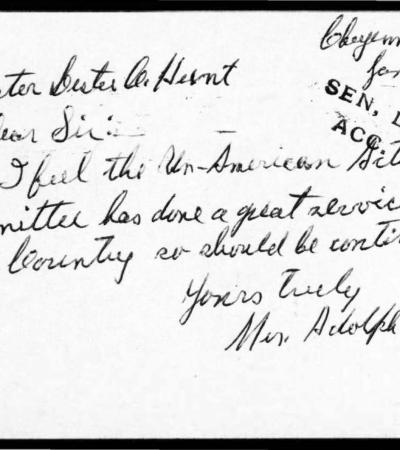 Cheyenn
Jan
SEN. L
ACC
ator Lester C. Hunt
Dear Sir:
I feel the Un-American Acti
mittee has done a great servic
Country so should be contin
Yours truly
Mrs. Adolph